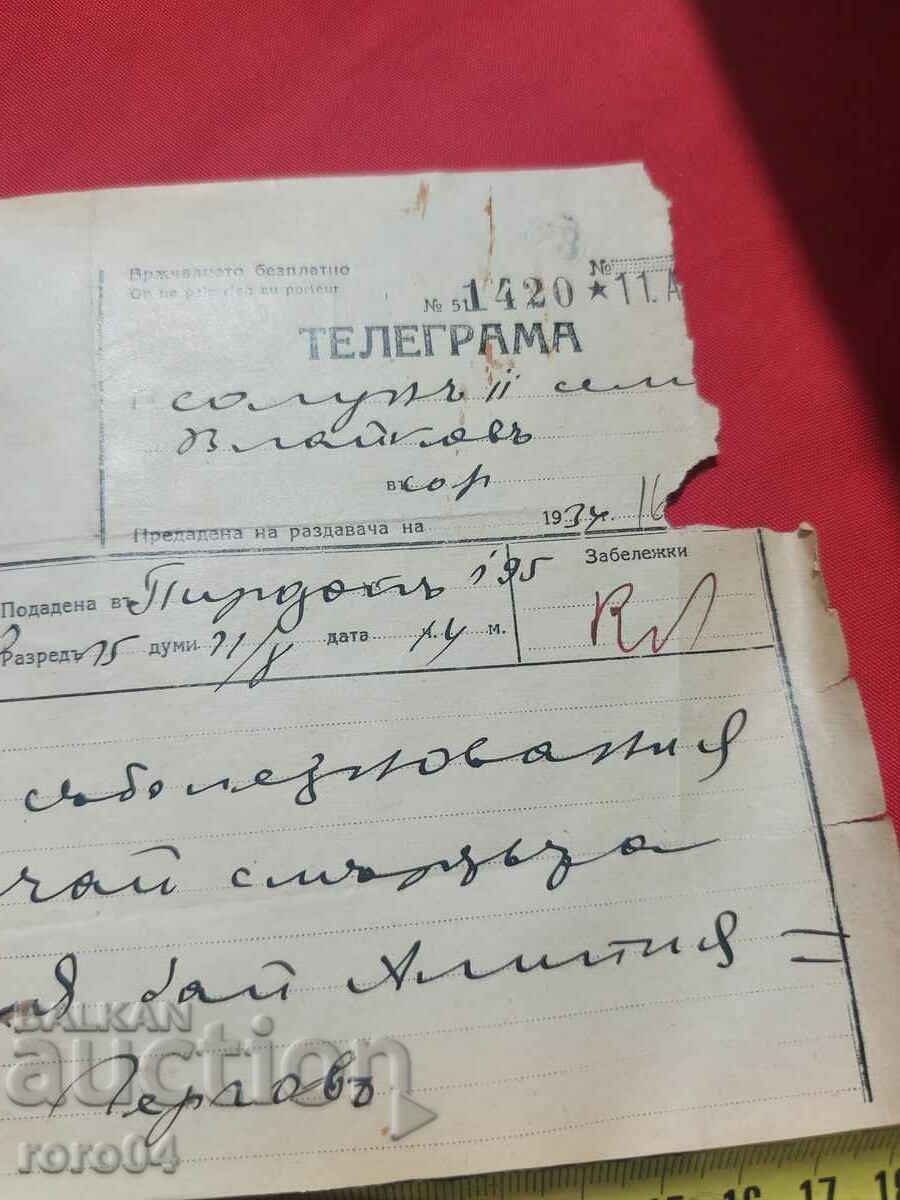 Връчването безплатно
On ne paie rien au porteur
№
№ 51 1420 * 11.А
ТЕЛЕГРАМА
солунъ 11 сем
Влайковъ
въ сор
Предадена на раздавача на 1934 г. 16
Подадена въ Пирдопъ 195
Забележки
Разредъ 15 думи 11/8 дата ч. 14 м.
съболезнования
чай смъртьта
я бай Алипия =
Герговъ
BALKAN
auction
roro04
16 17 18